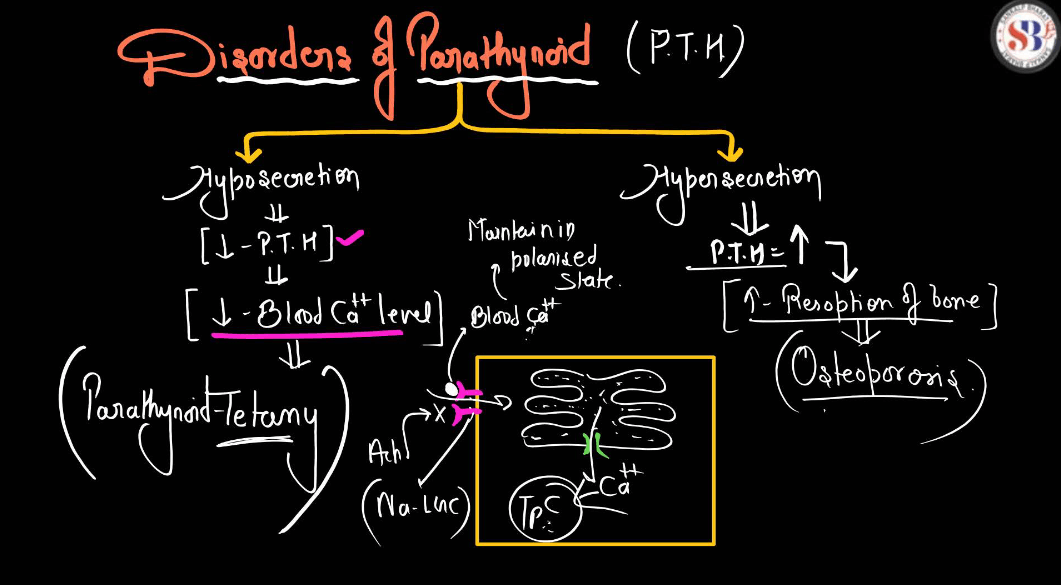 Disorders of Parathyroid (P.T.H)
Hyposecretion
[↓ - P.T.H]
[↓ - Blood Ca++ level]
Parathyroid-Tetany
Hypersecretion
P.T.H = ↑
[↑ - Resoption of bone]
(Osteoporosis.)
Maintain in
polarised
state.
Blood Ca++
?
X
Ach
(Na-Lnc)
Ca++
TpC
SB